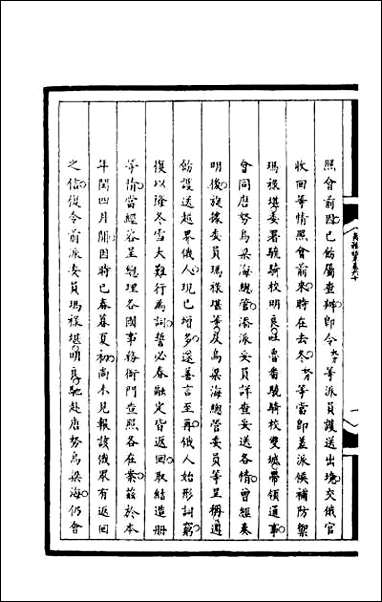 照會前因已飭屬查辦即令奴才等派員護送出境交俄官
收回等情照會前來時在去冬奴才等當即差派候補防禦
瑪祿堪委署驍騎校明良吐魯番驍騎校雙城帶領通事
會同唐努烏梁海總管湊派妥員詳查妥送各情曾經奏
明後旋據委員瑪祿堪等及烏梁海總管委員等呈稱遵
飭護送越界俄人現已增多選善言至再俄人始形詞窮
復以隆冬雪大難行為詞誓必春融定皆返回取結造冊
等情當經咨呈總理各國事務衙門查照各在案茲於本
年閏四月開因時已春暮夏初尚未見報該俄眾有返回
之信復令前派委員瑪祿堪明良馳赴唐努烏梁海仍會